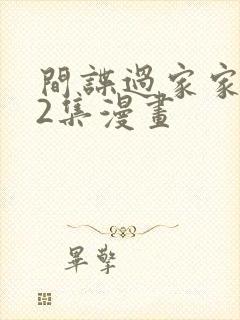 間諜過家家
2集漫畫
畢擎